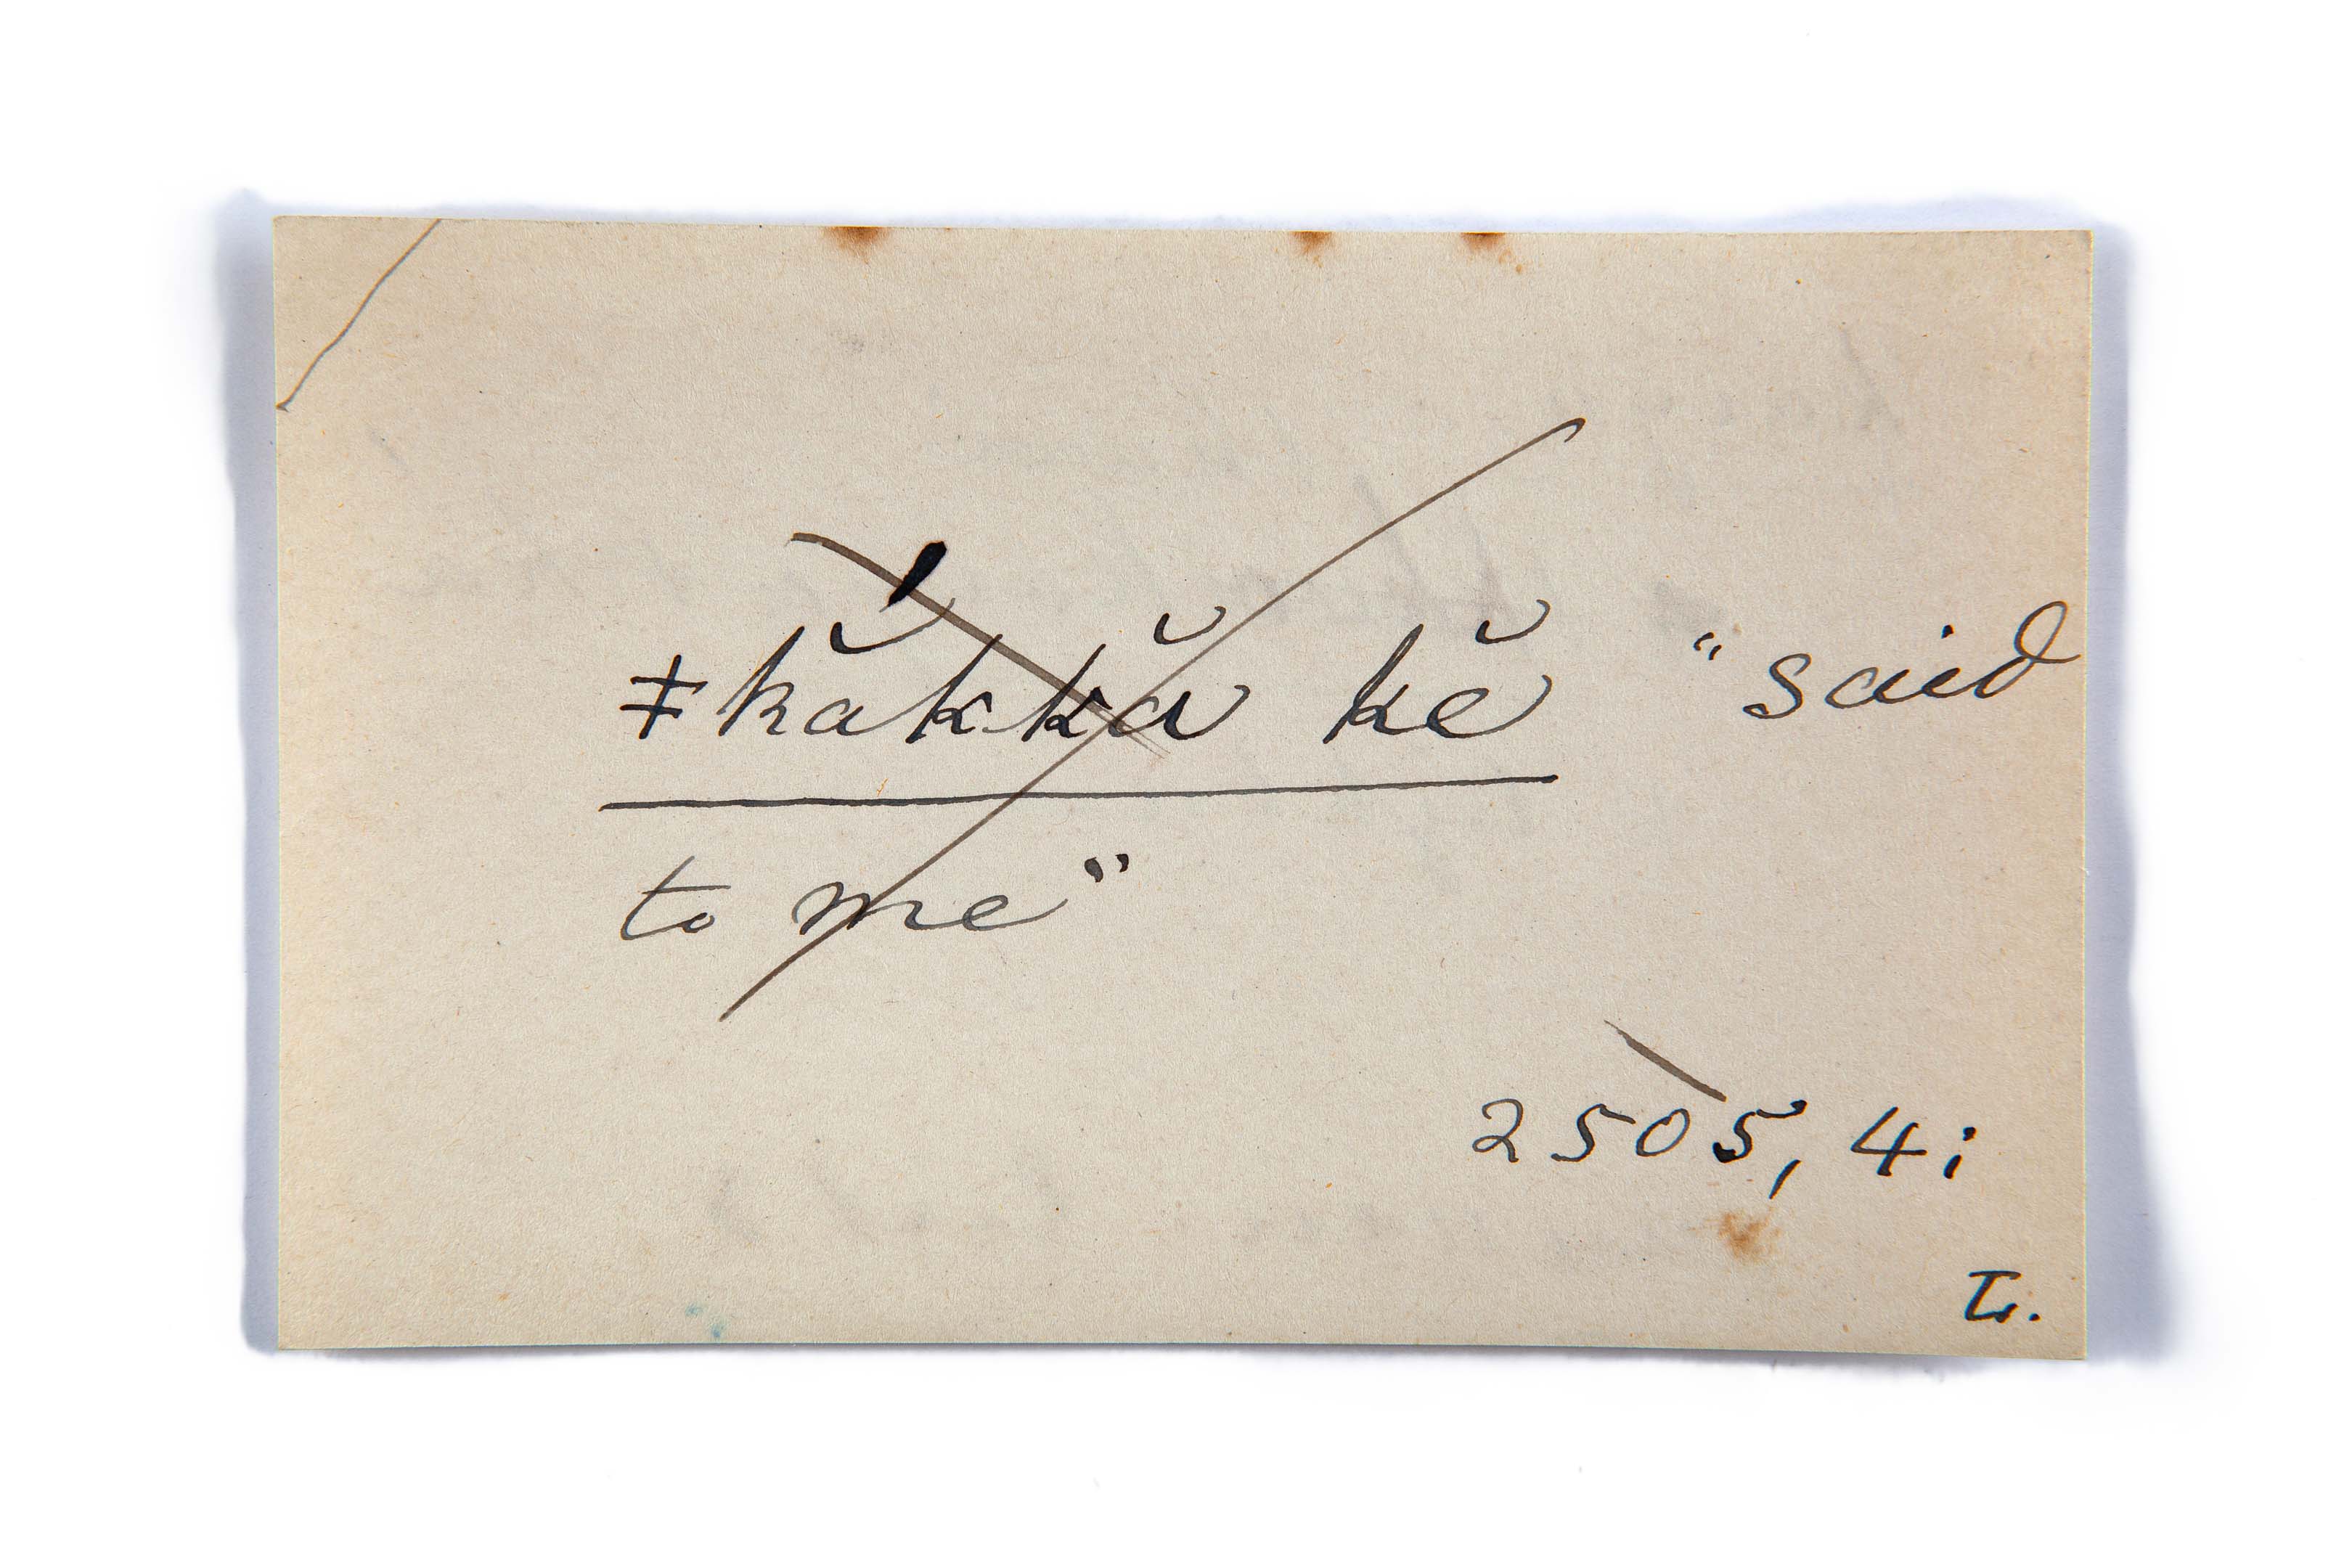 ǂkắkkă kĕ "said
to me"
2505, 4i
L.